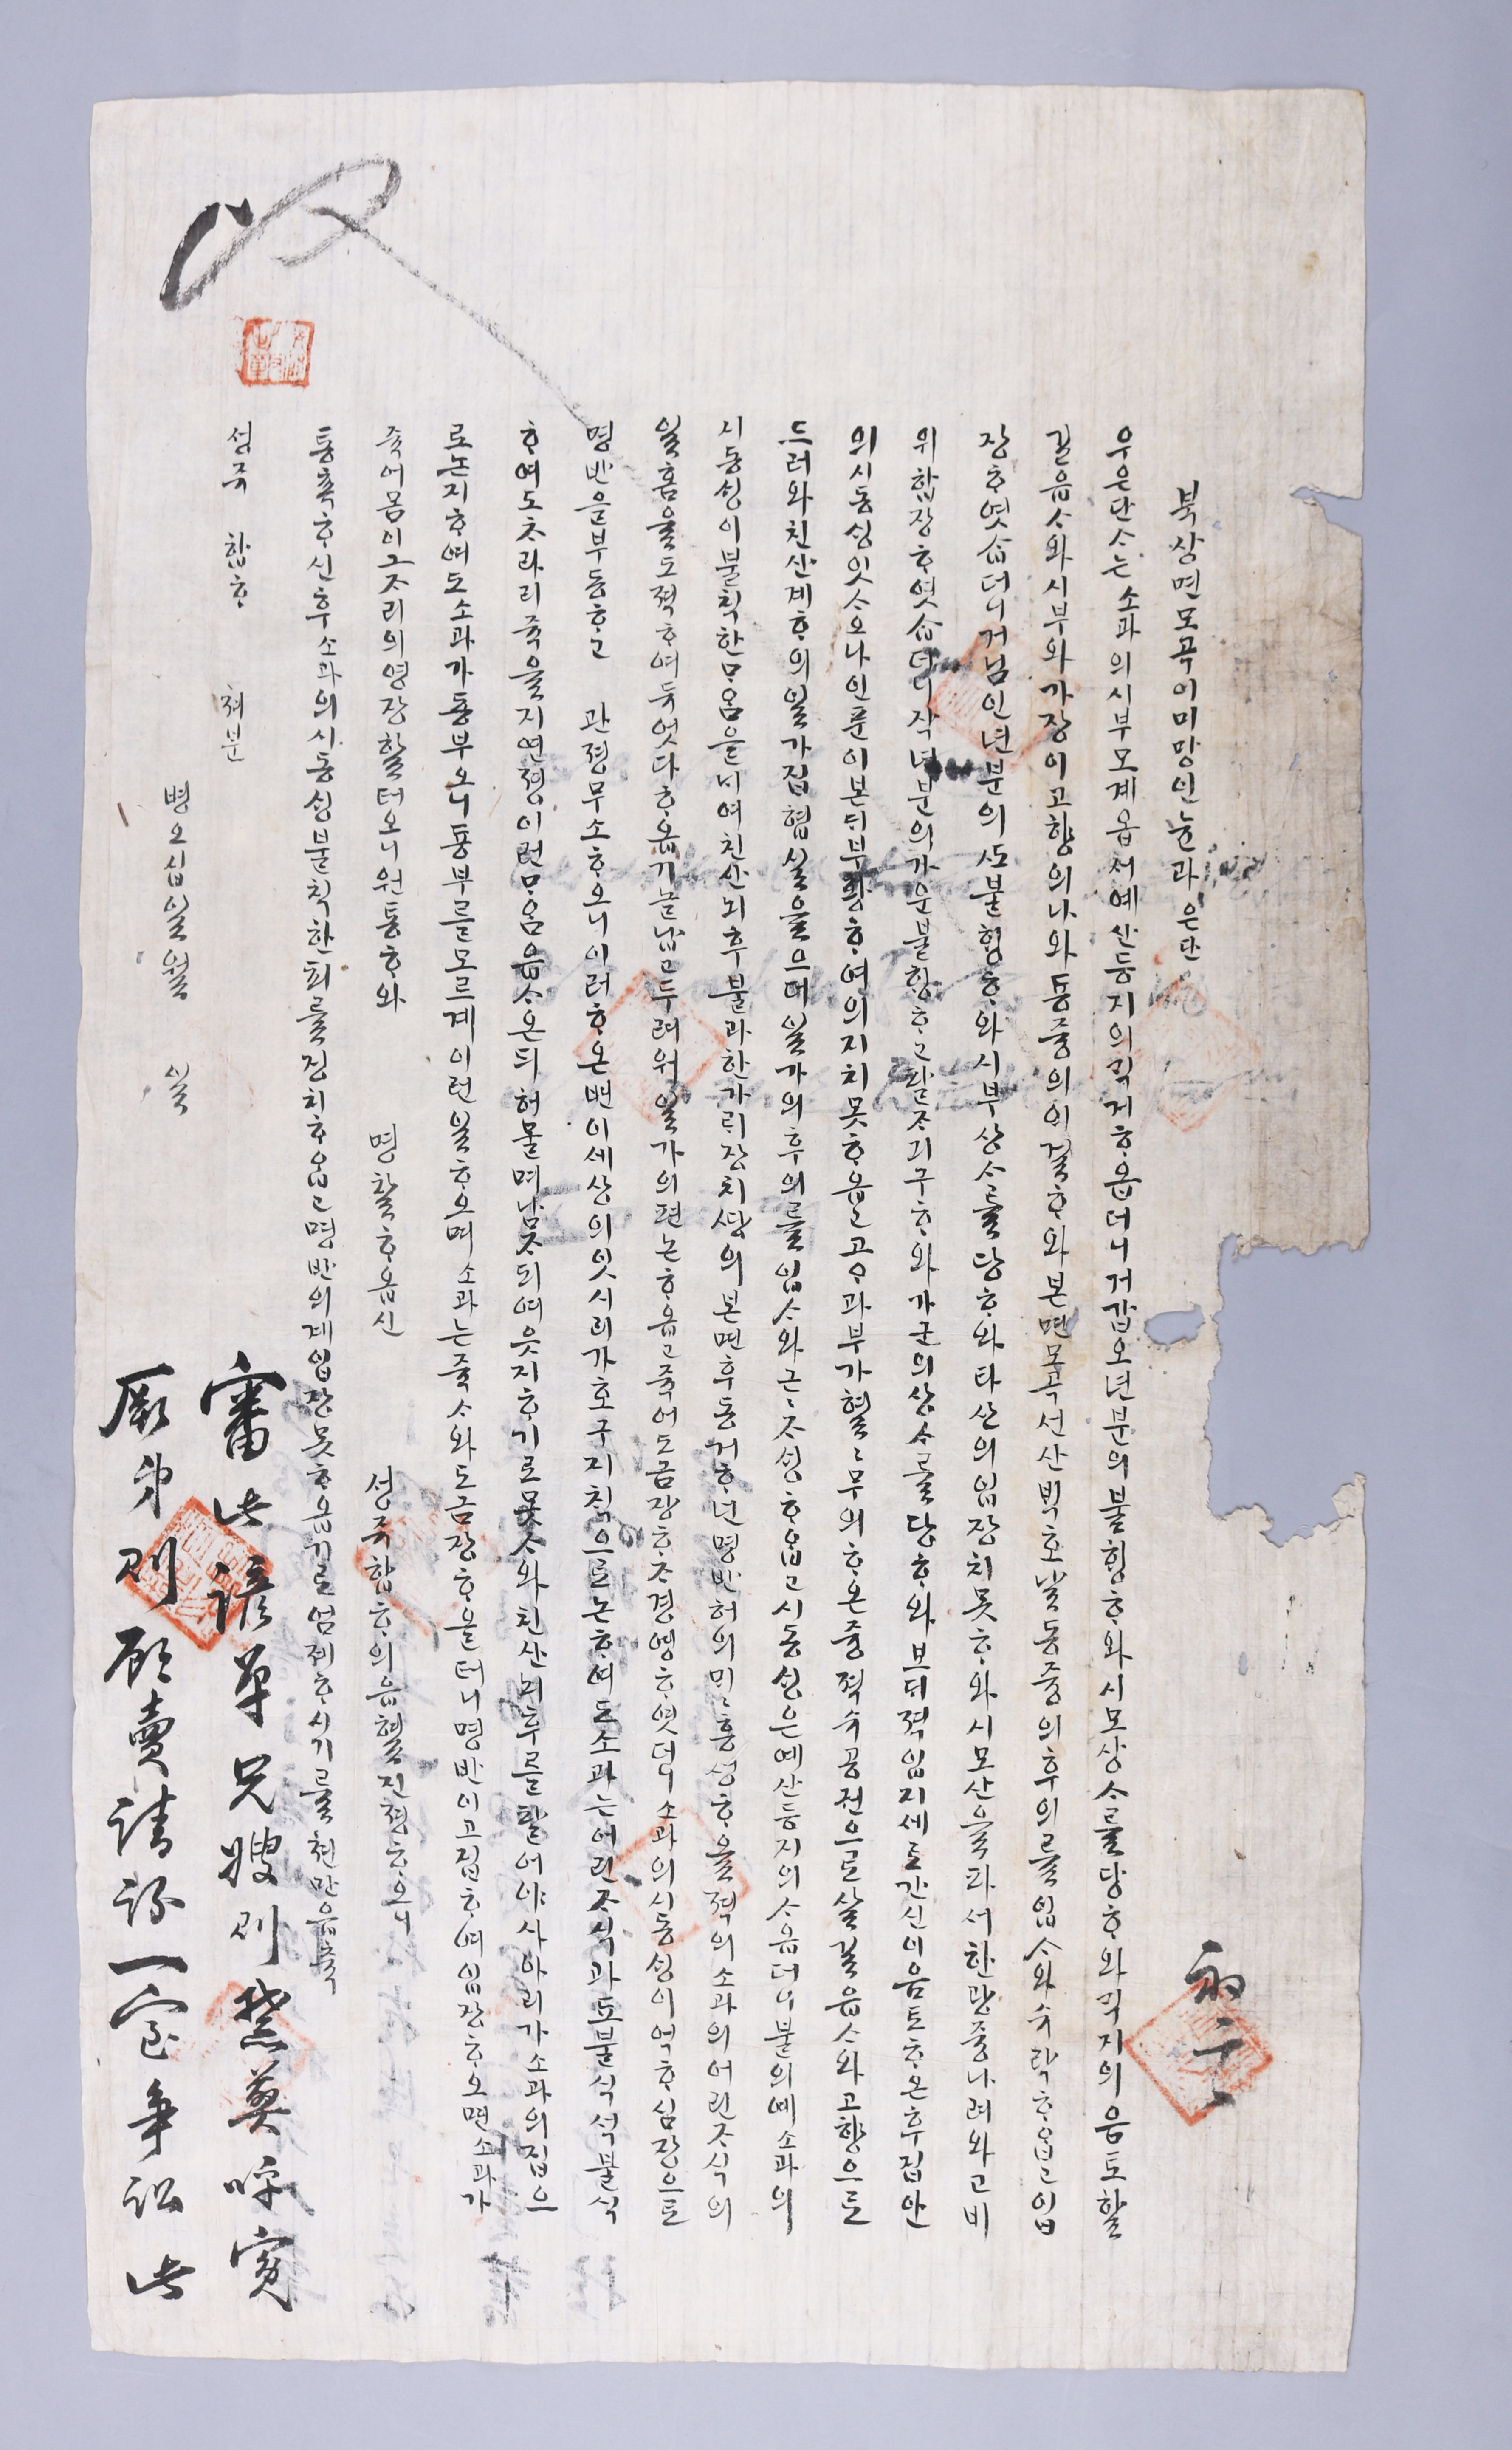 북상면 모곡 이미망인 뉸과 은단
우은단ᄉᆞ는 소과의 시부모계옵셔 예산 등지의 긱거ᄒᆞ옵더니 거갑오년분의 불힝ᄒᆞ와 시모상ᄉᆞ를 당ᄒᆞ와 긱지의 음토할
길읍ᄉᆞ와 시부와 가장이 고향의 나와 동중의 이걸ᄒᆞ와 본면 모곡 션산 ᄇᆡᆨ호 날 동중의 후의를 입ᄉᆞ와 슈락ᄒᆞ옵고 입
장ᄒᆞ엿ᄉᆞᆸ더니 거님인년분의 ᄯᅩ 불힝ᄒᆞ와 시부 상ᄉᆞ를 당ᄒᆞ와 타산의 입장치 못ᄒᆞ와 시모산을 파셔 한광중 나려와 고비
위 합장ᄒᆞ엿ᄉᆞᆸ더니 작년분의 가운불힝ᄒᆞ고 팔ᄌᆞ긔구ᄒᆞ와 가군의 상ᄉᆞ를 당ᄒᆞ와 브ᄃᆡ젹입지셰로 간신이 음토ᄒᆞ온 후 집안
의 시동ᄉᆡᆼ 잇ᄉᆞ오나 인륜이 본ᄃᆡ 부랑ᄒᆞ여 의지치 못ᄒᆞ옵고 고ᄋᆞ과부가 혈혈무의ᄒᆞ온 중 젹슈공권으로 살 길 읍ᄉᆞ와 고향으로
드러와 친산계ᄒᆞ의 일가집 협실을 으더 일가의 후의를 입ᄉᆞ와 근근ᄌᆞᄉᆡᆼᄒᆞ옵고 시동ᄉᆡᆼ은 예산 등지의 ᄉᆞ옵더니 불의예 소과의
시동ᄉᆡᆼ이 불칙한 ᄆᆞ옴을 ᄂᆡ여 친산 뇌후 불과 한가ᄅᆡ장치 ᄯᅡᆼ의 본면 후동 거ᄒᆞ년 명반허의 밀밀흥셩ᄒᆞ올 젹의 소과의 어린 ᄌᆞ식의
일홈을 도젹ᄒᆞ여 두엇다 ᄒᆞ옵기 놀납고 두려워 일가의 편논ᄒᆞ옵고 죽어도 금장ᄒᆞᄌᆞ 경영ᄒᆞ엿더니 소과의 시동ᄉᆡᆼ이 억ᄒᆞ심장으로
명반을 부동ᄒᆞ고 관졍무소ᄒᆞ오니 이러ᄒᆞ온 변이 셰상의 잇시리가 호구지칙으로 논ᄒᆞ여도 소과는 어린 ᄌᆞ식과 ᄯᅩ 불식석불식
ᄒᆞ여도 ᄎᆞ라리 죽을지연졍 이런 ᄆᆞ옴 읍ᄉᆞ온ᄃᆡ 허물며 남ᄌᆞ되여 웃지ᄒᆞ기로 못ᄉᆞ와 친산 뇌후를 팔어야 사아리가 소과의 집으
로 논지ᄒᆞ여도 소과가 통부오니 통부를 모르계 이런 일 ᄒᆞ오며 소과는 죽ᄉᆞ와도 금장ᄒᆞ올 터니 명반이 고집ᄒᆞ여 입장ᄒᆞ오면 소과가
죽어 몸이 그 ᄌᆞ리의 영장할 터오니 원통ᄒᆞ와 명찰ᄒᆞ옵신 셩쥬 합ᄒᆞ의 읍혈진졍ᄒᆞ오니
통촉ᄒᆞ신 후 소과의 시동ᄉᆡᆼ 불칙한 죄를 징치ᄒᆞ옵고 명반의계 입장 못ᄒᆞ옵기로 엄졔ᄒᆞ시기를 쳔만읍축
셩쥬 합ᄒᆞ 쳐분
병오 십일월 일
審此諺單兄嫂則禁葬呼寃
厥弟則願賣請訟一室爭訟此